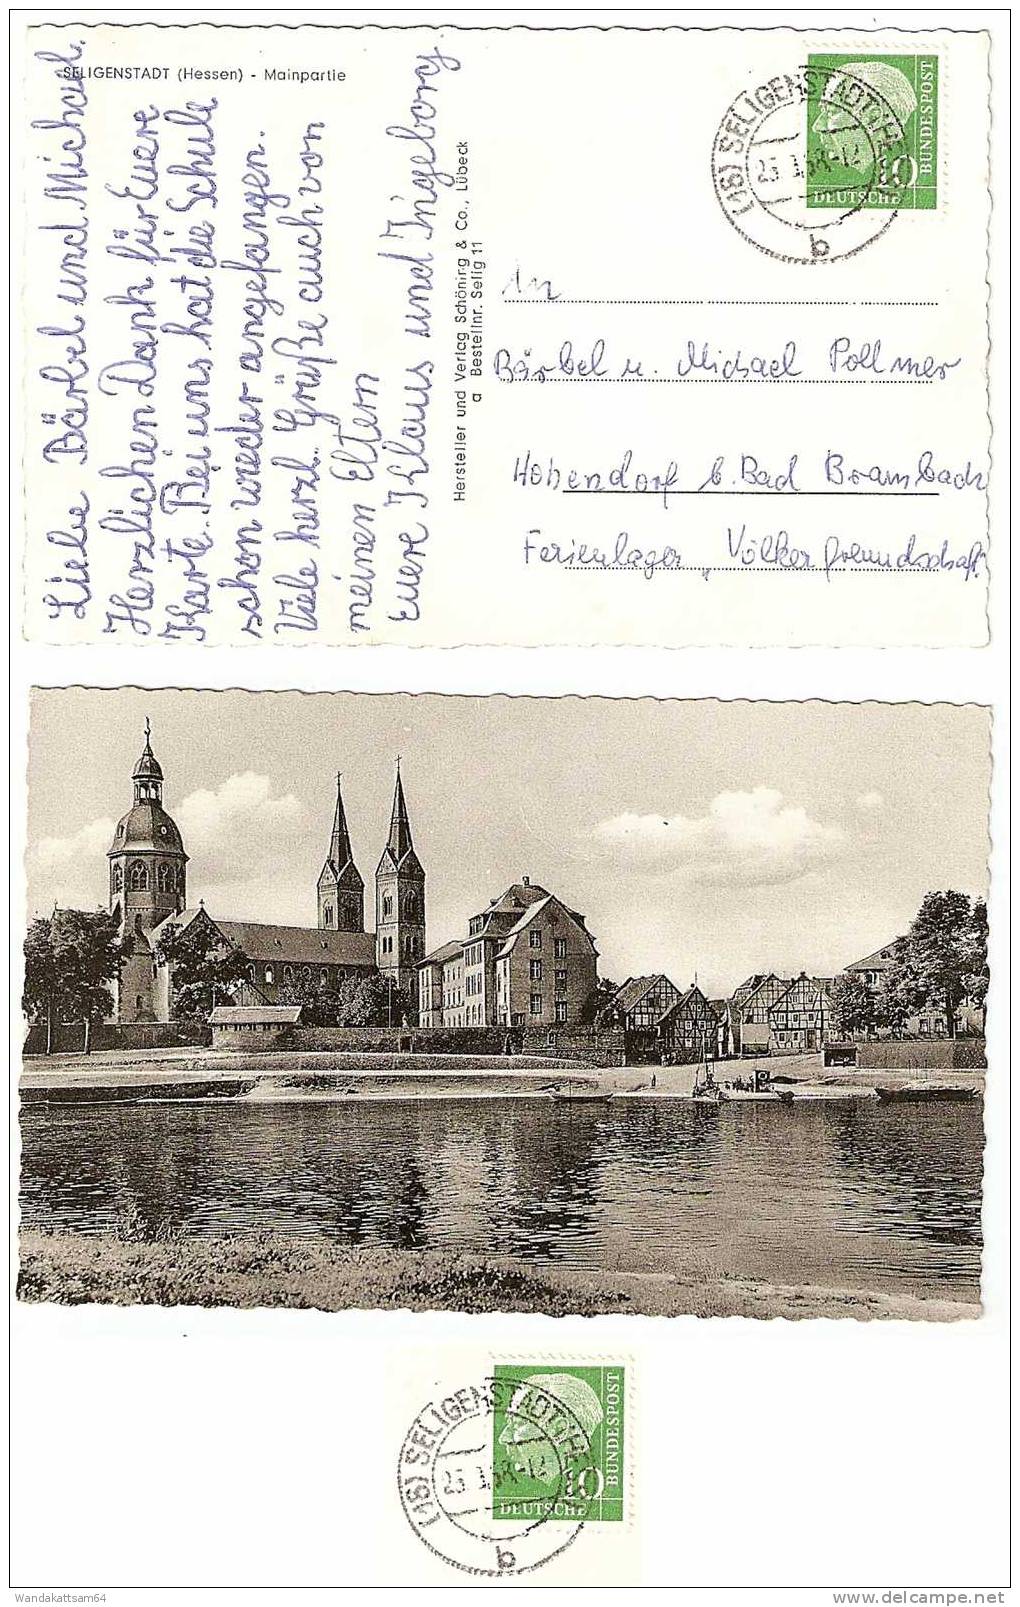 SELIGENSTADT (Hessen) - Mainpartie
Liebe Bärbel und Michael.
Herzlichen Dank für Euere
Karte. Bei uns hat die Schule
schon wieder angefangen.
Viele herzl. Grüße auch von
meinen Eltern
Euere Klaus und Ingeborg
Hersteller und Verlag Schöning & Co., Lübeck
a Bestellnr. Selig 11
(16) SELIGENSTADT (HE
b
10
DEUTSCHE
BUNDESPOST
An
Bärbel u. Michael Pollmer
Hohendorf b. Bad Brambach
Ferienlager „Völkerfreundschaft"
(16) SELIGENSTADT (HE
b
10
DEUTSCHE
BUNDESPOST
Wandakattsam64
www.delcampe.net